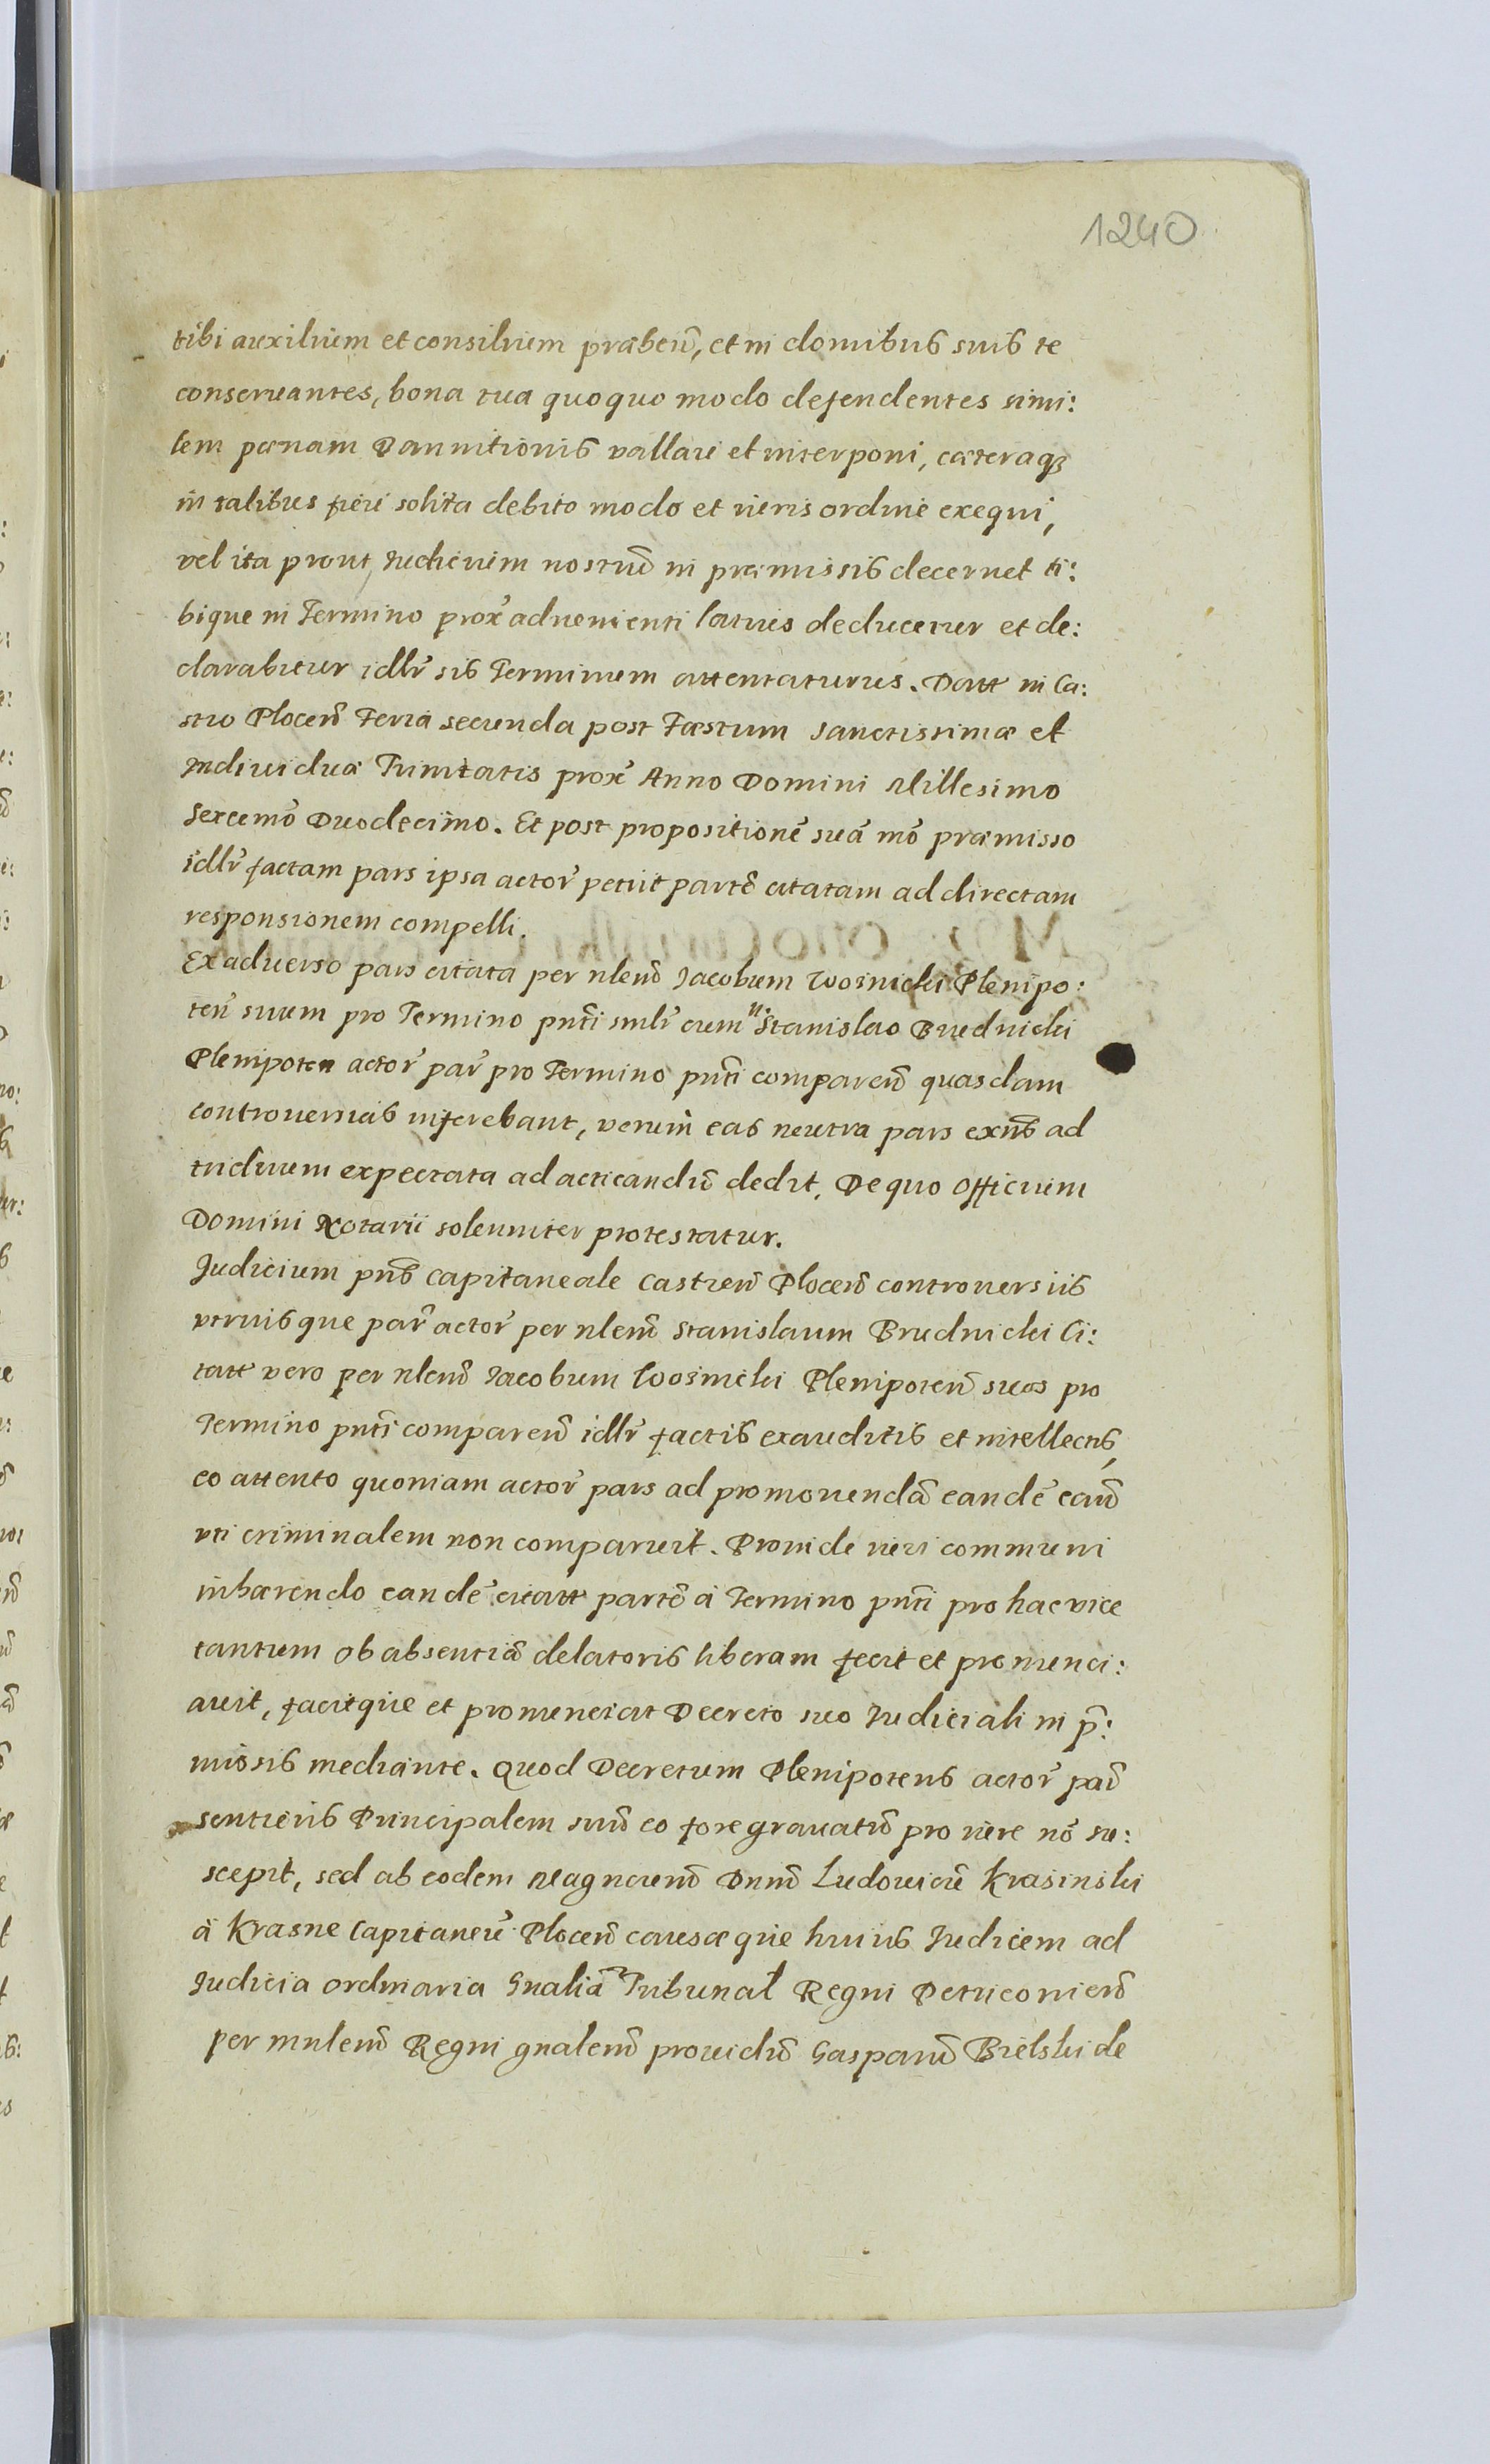 1240
tibi auxilium et consilium præbeñ, et in domibus suis te
conseruantes, bona tua quoquo modo defendentes simi:
lem pœnam Bannitionis vallari et interponi, cæteraqȝ
in talibus fieri solita debito modo et iuris ordine exequi,
vel ita prout Iudicium nostrũ in præmissis decernet ti:
bique in Termino prox̃ aduenienti latius deducetur et de:
clarabitur idlr̃ sis Terminum attentaturus. Datt in Ca:
stro Ploceñ Feria secunda post Fæstum Sanctissimæ et
Indiuiduæ Trinitatis prox̃ Anno Domini Millesimo
Sexcẽmo Duodecimo. Et post propositionẽ suã mõ præmisso
idlr̃ factam pars ipsa actor̃ petiit partẽ citatam ad directam
responsionem compelli.
Ex aduerso pars citata per nlem̃ Iacobum Woznicki Plenipo:
teñ suum pro Termino pñti smlr̃ cum N: Stanislao Brudnicki
Plenipoten actor̃ par̃ pro Termino pñti compareñ quasdam
controuersias inferebant, verum eas neutra pars exñs ad
triduum expectata ad acticandũ dedit, De quo Officium
Domini Notarii solemniter protestatur.
Judicium pñs Capitaneale Castreñ Ploceñ controuersiis
vtriusque par̃ actor̃ per nlem̃ Stanislaum Brudnicki Ci:
tatt vero per nlem̃ Iacobum Woznicki Plenipoteñ suos pro
Termino pñti compareñ idlr̃ factis exauditis et intellectis,
eo attento quoniam actor̃ pars ad promouendã eandẽ cam̃
vti criminalem non comparuit. Proinde iuri communi
inhærendo eandẽ citatt partẽ à Termino pñti pro hac vice
tantum ob absentiã delatoris liberam fecit et pronunci:
auit, facitque et pronunciat Decreto suo Iudiciali in p̃:
missis mediante. Quod Decretum Plenipotens actor̃ par̃
sentiens Principalem suũ eo fore grauatũ pro iure nõ su:
scepit, sed ab eodem Magncum̃ Dnũ Ludouicũ Krasinski
à Krasne Capitaneũ Ploceñ causæque huius Iudicem ad
Iudicia ordinaria Gnalia Tribunal Regni Petricouieñ
per mnlem̃ Regni gnalem̃ prouidũ Gasparũ Bielski de